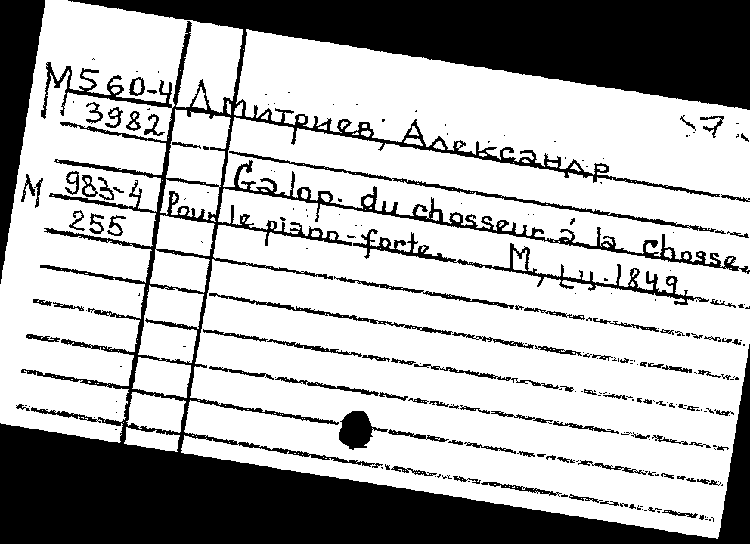 М 560-4
3982
Дмитриев, Александр
57
М 983-4
255
Galop. du chosseur à la chosse.
Pour le piano-forte. М., Ц. 1849